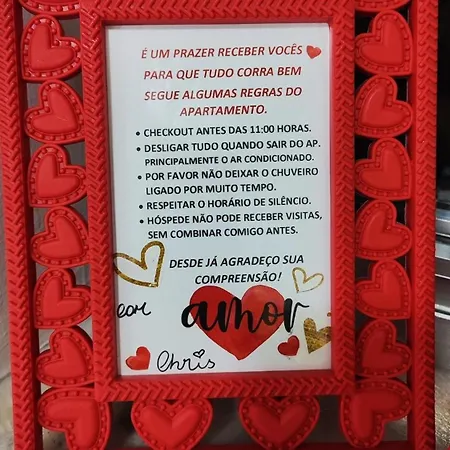 É UM PRAZER RECEBER VOCÊS
PARA QUE TUDO CORRA BEM
SEGUE ALGUMAS REGRAS DO
APARTAMENTO.
• CHECKOUT ANTES DAS 11:00 HORAS.
• DESLIGAR TUDO QUANDO SAIR DO AP.
PRINCIPALMENTE O AR CONDICIONADO.
• POR FAVOR NÃO DEIXAR O CHUVEIRO
LIGADO POR MUITO TEMPO.
• RESPEITAR O HORÁRIO DE SILÊNCIO.
• HÓSPEDE NÃO PODE RECEBER VISITAS,
SEM COMBINAR COMIGO ANTES.
DESDE JÁ AGRADEÇO SUA
COMPREENSÃO!
com amor
Chris